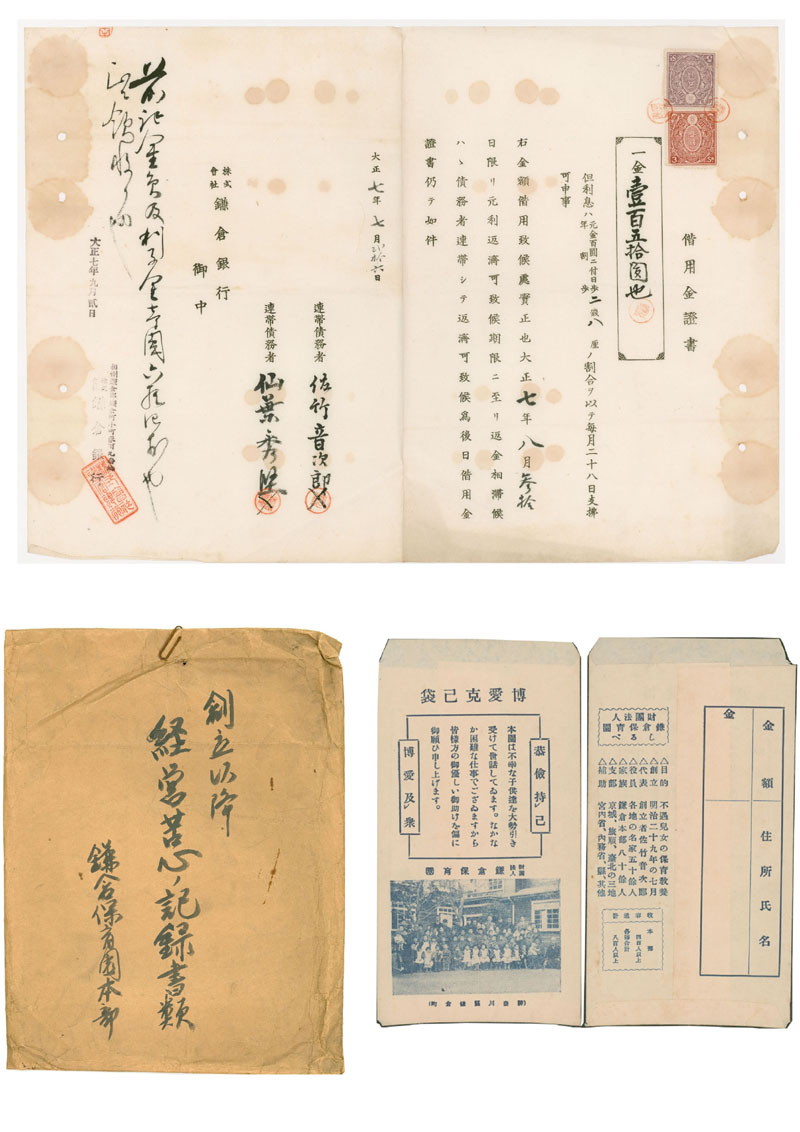 借用金證書
一金壹百五拾圓也
但利息ハ元金百圓ニ付日歩二錢八厘ノ割合ヲ以テ毎月二十八日支拂
年 割 歩
可申事
右金額借用致候處實正也大正七年八月参拾
日限リ元利返濟可致候期限ニ至リ返金相滯候
ハヽ債務者連帶シテ返濟可致候爲後日借用金
證書仍テ如件
大正七年七月弐拾六日
連帶債務者 佐竹音次郎
連帶債務者 仙葉秀
株式會社 鎌倉銀行
御中
前記金員及利子金
大正七年九月貳日
倉銀行
創立以降
経営苦心ノ記録書類
鎌倉保育園本部
博愛克己袋
恭儉持己
本園は不幸な子供達を大勢引き
受けて世話してゐます。なかな
か困難な仕事でござゐますから
皆様方の御優しい御助けを偏に
御願ひ申し上げます。
博愛及衆
財團法人 鎌倉保育園
(神奈川縣鎌倉町)
金額 住所氏名
金
財團法人
鎌倉保育園
しるべ
△目的 不遇兒女の保育教養
△創立 明治二十九年の七月
△代表 創立者佐竹音次郎
△役員 各地の名家五十餘人
△家族 鎌倉本部八十餘人
△支部 京城、旅順、臺北の三地
△補助 宮内省、内務省、縣、其他
本部 四百人以上
各部合計
計 八百人以上